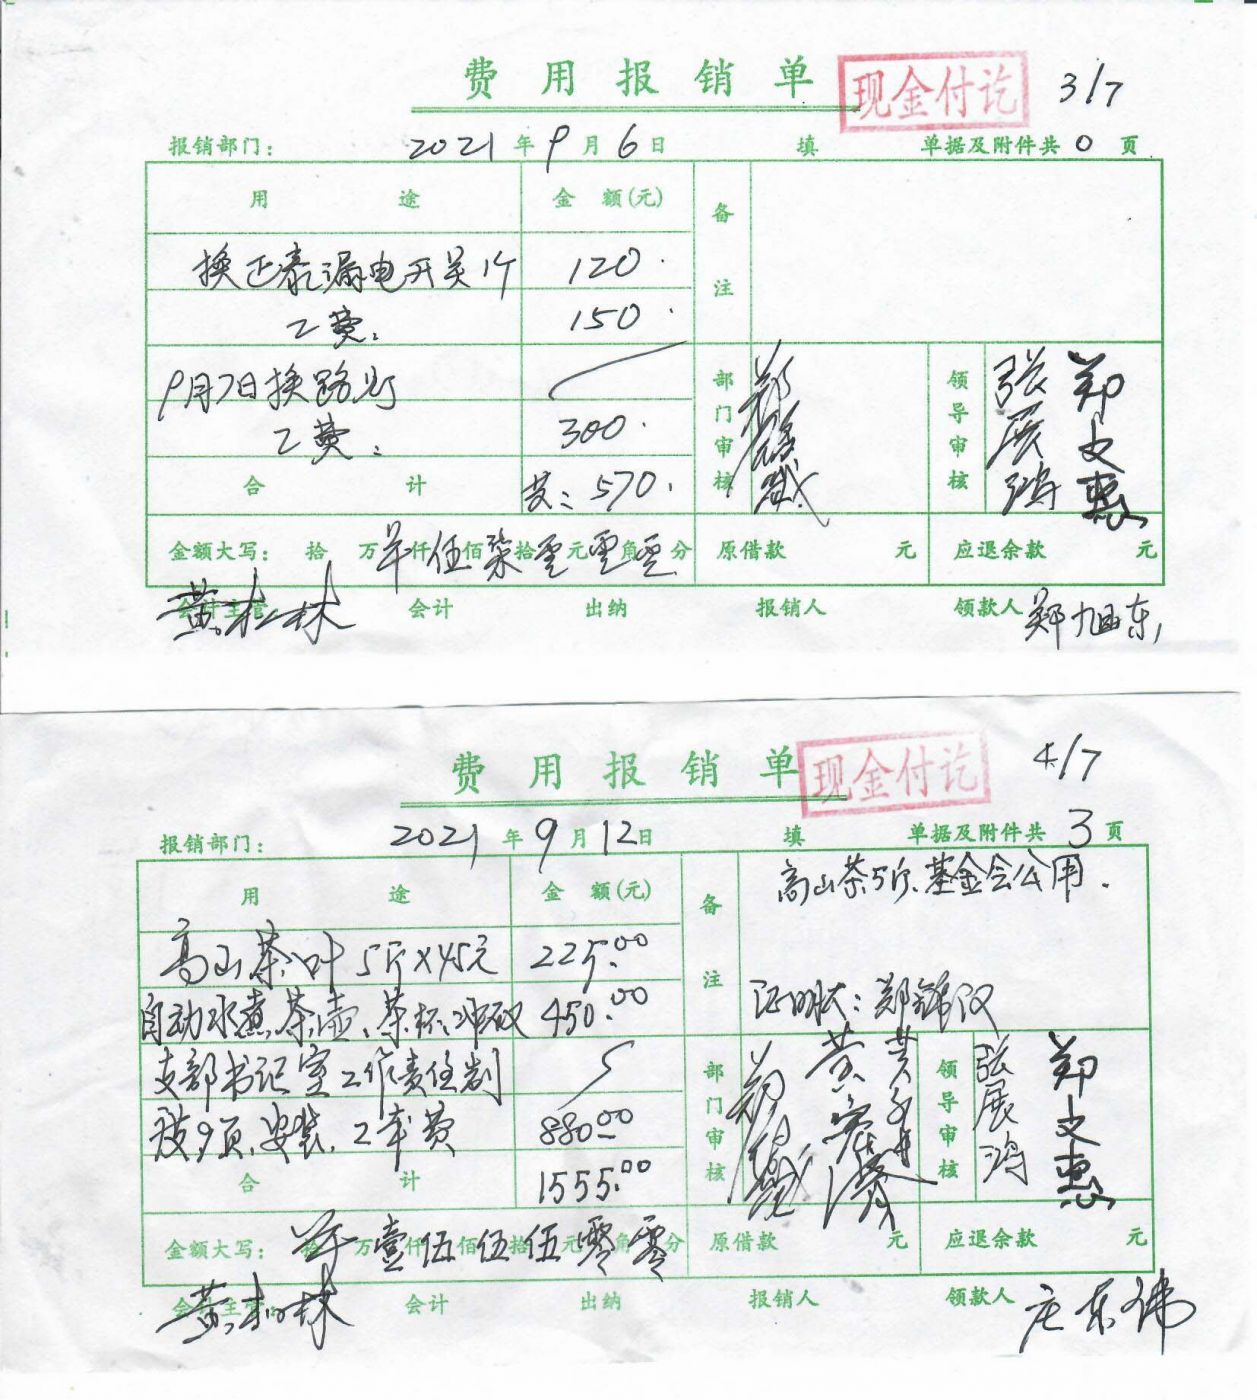 费用报销单 现金付讫 3/7
报销部门: 2021年9月6日 填 单据及附件共0页
用途 金额(元) 备注
换正泰漏电开关1个 120.
工费. 150.
9月7日换路灯
工费. 300.
合计 共:570.
部门审核 领导审核 张展鸿 郑文惠
金额大写: 拾万羊仟伍佰柒拾零元零角零分 原借款 元 应退余款 元
会计主管: 黄松林 会计 出纳 报销人 领款人 郑旭东
费用报销单 现金付讫 4/7
报销部门: 2021年9月12日 填 单据及附件共3页
用途 金额(元) 备注 高山茶5斤.基金会公用.
高山茶叶 5斤×45元 225.00
自动水煮茶壶、茶杯、冲 450.00
证明状:郑锦汉
支部书记室工作责任制
9页.安装.工车费 880.00
合计 1555.00
部门审核 领导审核 张展鸿 郑文惠
金额大写: 羊拾万壹仟伍佰伍拾伍元零角零分 原借款 元 应退余款 元
会计主管: 黄松林 会计 出纳 报销人 领款人 庄东伟